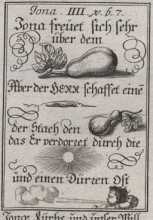 Jona IIII v. 6. 7.
Jona freuet sich sehr
über dem
Aber der HERR schaffet eine
der stach den
das Er verdorret durch die
und einen Dürren Ost